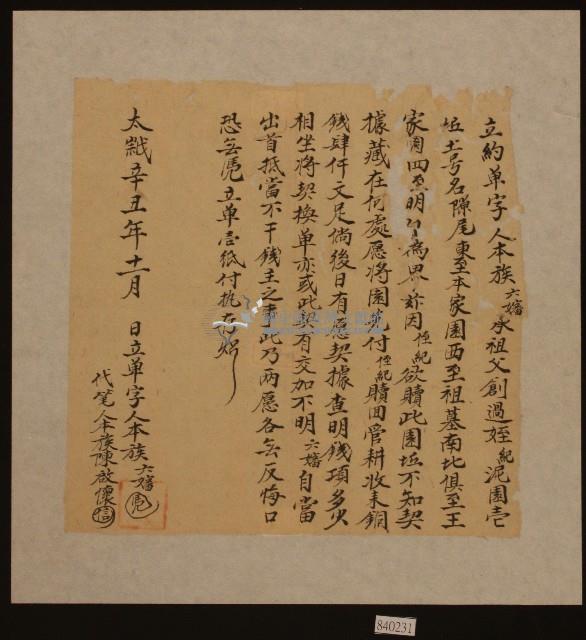 立約单字人本族六嬸承祖父創過姪紀泥園壹
坵土号名隙尾東至本家園西至祖墓南北俱至王
家園四至明白為界茲因姪紀欲贖此園坵不知契
據藏在何處愿將園坵付姪紀贖回管耕收来銅
錢肆仟文足倘後日有愿契據查明錢項多少
相坐將契換单亦或此契有交加不明六嬸自當
出首抵當不干錢主之事此乃两愿各無反悔口
恐無憑立单壱紙付执存炤
太歲辛丑年十一月 日立单字人本族六嬸
代笔人本族陳啟懷
840231